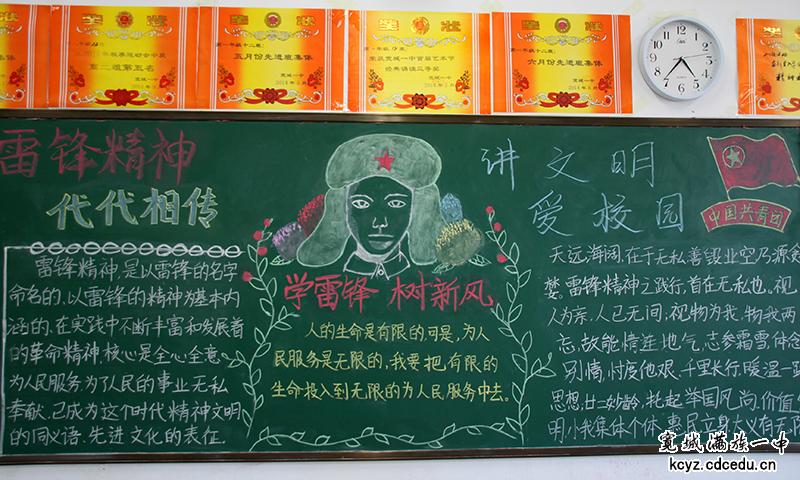 奖状
奖状
第一年级十二班:
五月份先进班集体
宽城一中
奖状
奖状
第一年级十二班:
六月份先进班集体
宽城一中
高二组第五名
荣获宽城一中首届艺术节
雷锋精神
代代相传
雷锋精神,是以雷锋的名字
命名的,以雷锋的精神为基本内
涵的,在实践中不断丰富和发展着
的革命精神,核心是全心全意
为人民服务,为了人民的事业无私
奉献,已成为这个时代精神文明
的同义语,先进文化的表征.
学雷锋 树新风
人的生命是有限的,可是,为人
民服务是无限的,我要把有限的
生命投入到无限的为人民服务中去。
讲文明
爱校园
中国共青团
天远海阔,在于无私善
雷锋精神之践行,首在无私也。视
人为亲,人已无间,视物为我,物我两
忘,故能情连地气,志参霜雪,体念
别情,忖度他艰,千里长行,暖温一
思想,廿二妙龄,托起举国风尚,价值
明,小我集体个体
宽城满族一中
kcyz.cdcedu.cn